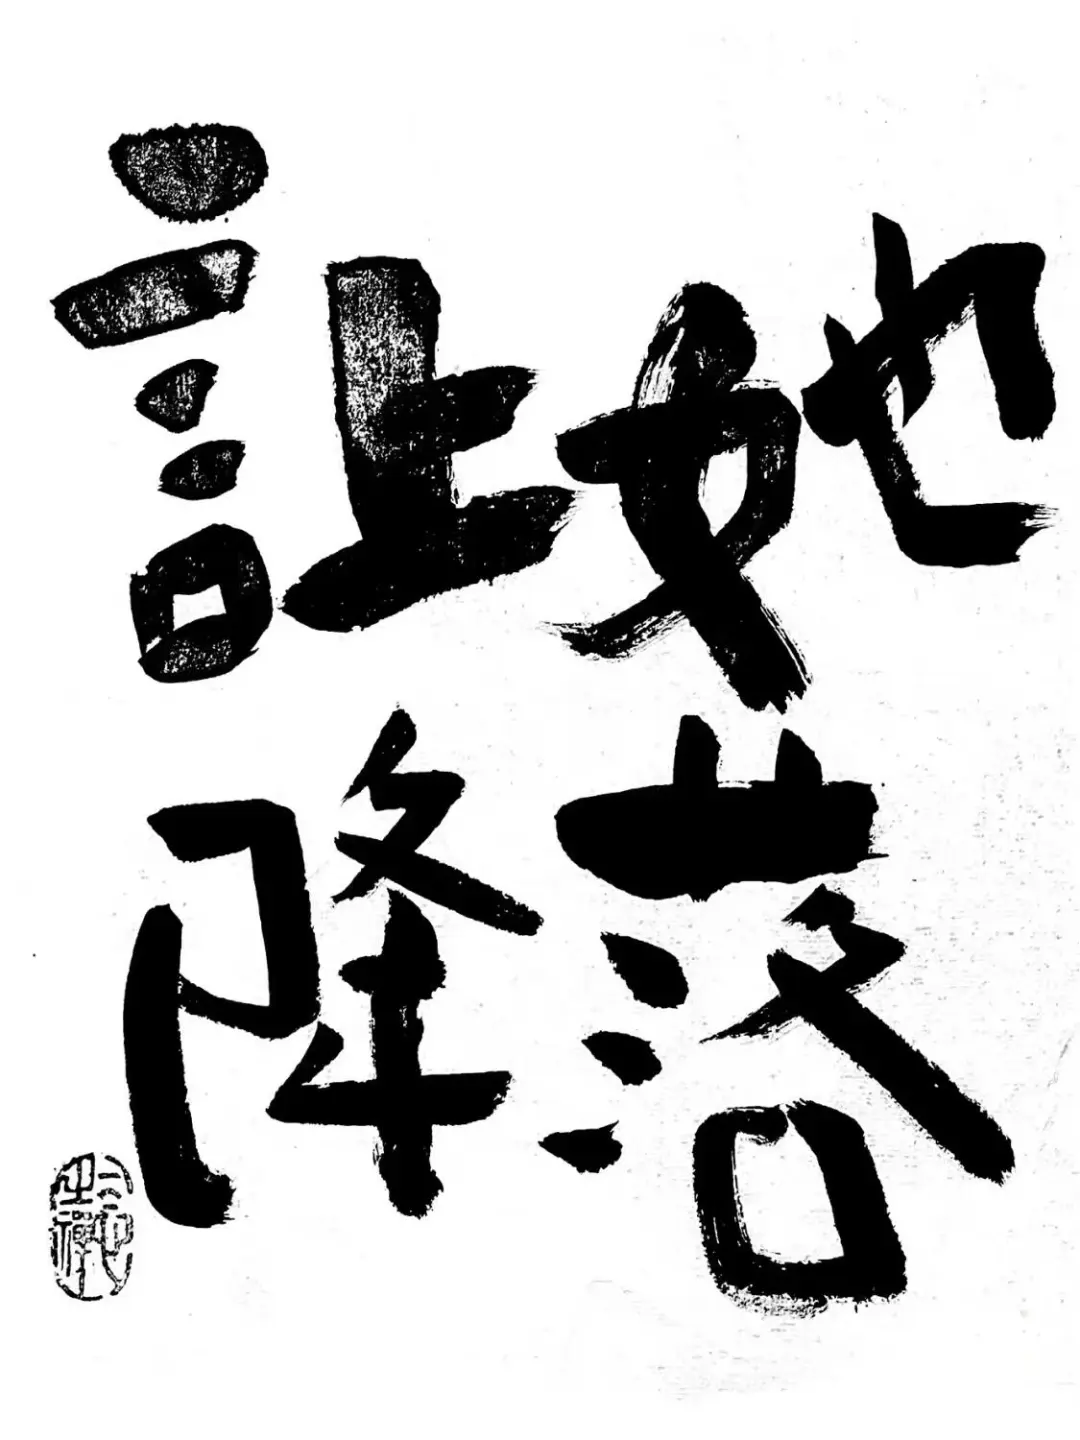 让她
降落